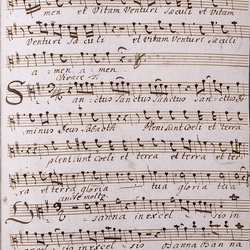 men et Vitam Venturi Sæculi et Vitam
Venturi Sæculi et Vitam Venturi sæculi
a men a men
Vivace
Sanctus Sanctus Sanctus sanctus Do
minus Deus Sabaoth Pleni sunt Coeli et terra
pleni sunt Coeli et terra et terra et ter
ra et terra gloria tua gloria tua
Andte molto
Osanna in excel sis in
excel sis Osanna Osan na